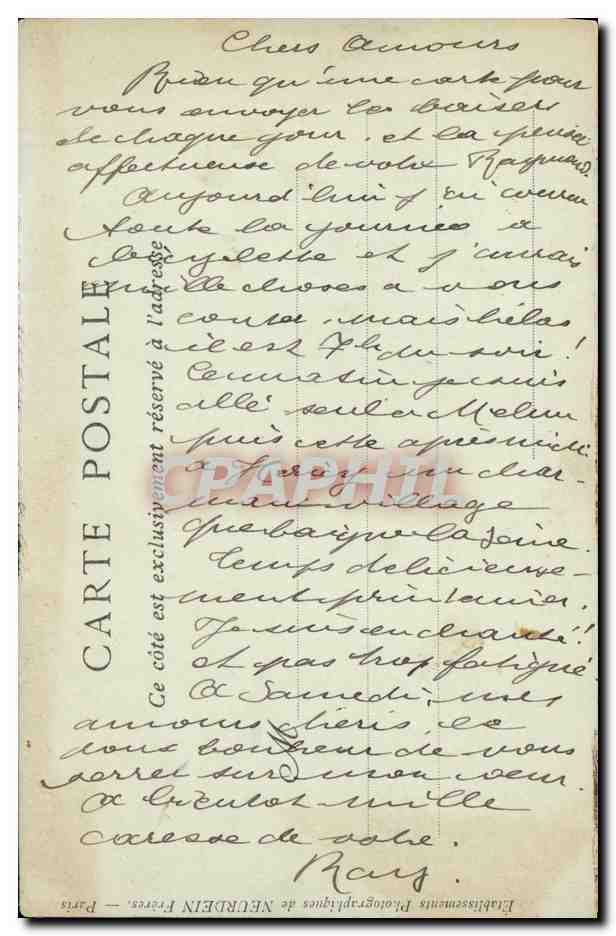 Chers Amours
Rien qu'une carte pour
vous envoyer les baisers
de chaque jour, et la pensée
affectueuse de votre Raymond.
Aujourd'hui j'ai couru
toute la journée à
bicyclette et j'aurais
mille choses à vous
conter, mais hélas
il est 7h du soir!
Ce matin je suis
allé seul à Melun
puis cette après midi
à Héricy un char-
mant village
que baigne la Seine.
Temps délicieuse-
ment printanier.
Je suis enchanté!
et pas trop fatigué.
A Samedi, mes
amours chéris, le
doux bonheur de vous
serrer sur mon cœur.
A bientôt mille
caresse de votre.
Ray.
CARTE POSTALE
Ce côté est exclusivement réservé à l'adresse
M
Établissements Photographiques de NEURDEIN Frères. — Paris
CPAPHIL